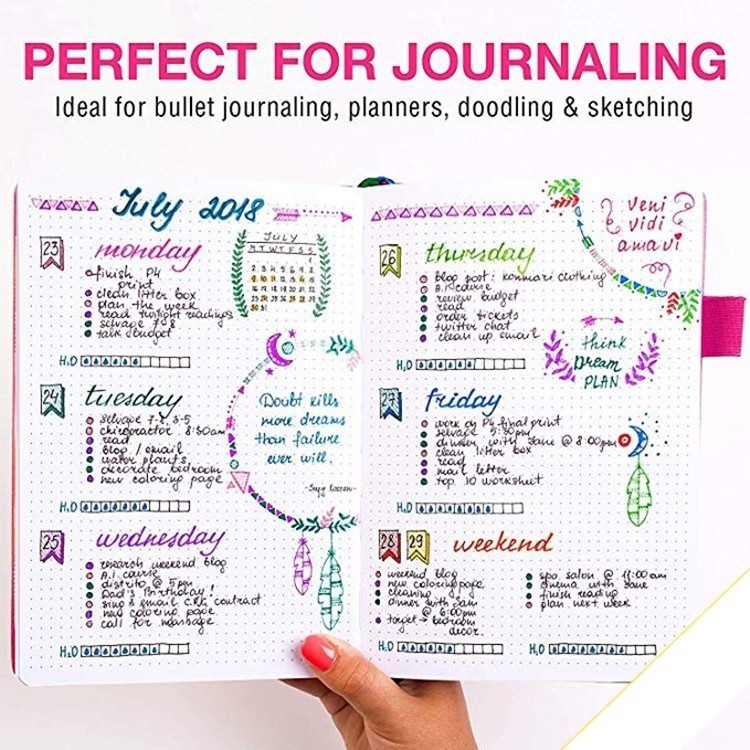 PERFECT FOR JOURNALING
Ideal for bullet journaling, planners, doodling & sketching
July 2018
23
monday
finish P4
print
clean litter box
plan the week
read twilight readings
selvage 7-8
talk budget
H2O
JULY
M T W T F S S
24
tuesday
selvage 7-8, 3-5
chiropractor 8:30am
read
blog / email
water plants
decorate bedroom
new coloring page
H2O
Doubt kills
more dreams
than failure
ever will.
25
wednesday
research weekend blog
A.I. course
distrito @ 5 pm
Dad's Birthday!
sing & email contract
new coloring page
call for massage
H2O
veni
vidi
amavi
26
thursday
blog post: konmari clothing
A.I. course
review budget
read
order tickets
twitter chat
clean up email
H2O
think
Dream
PLAN
27
friday
work on P4 final print
selvage 5:30pm
dinner with Jane @ 8:00pm
clean litter box
read
mail letter
top 10 worksheet
H2O
28
29
weekend
weekend blog
new coloring page
cleaning
dinner with Sam
@ 6:00pm
target → bedroom
decor.
H2O
spa salon @ 11:00am
cinema with Jane
finish reading
plan next week
H2O